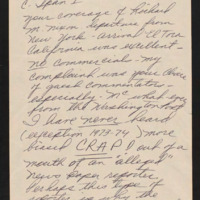 C-Span's
your coverage of Richard
M. Nixon departure from
New York - arrival El Toro
California was excellent -
no commercials - my
complaint was your choice
of guest commentators -
especially
from the Washington Post
I have never heard
(exception 1973-74) more
biased CRAP! out of a
mouth of an "alleged"
news paper reporter.
Perhaps this type of
why the